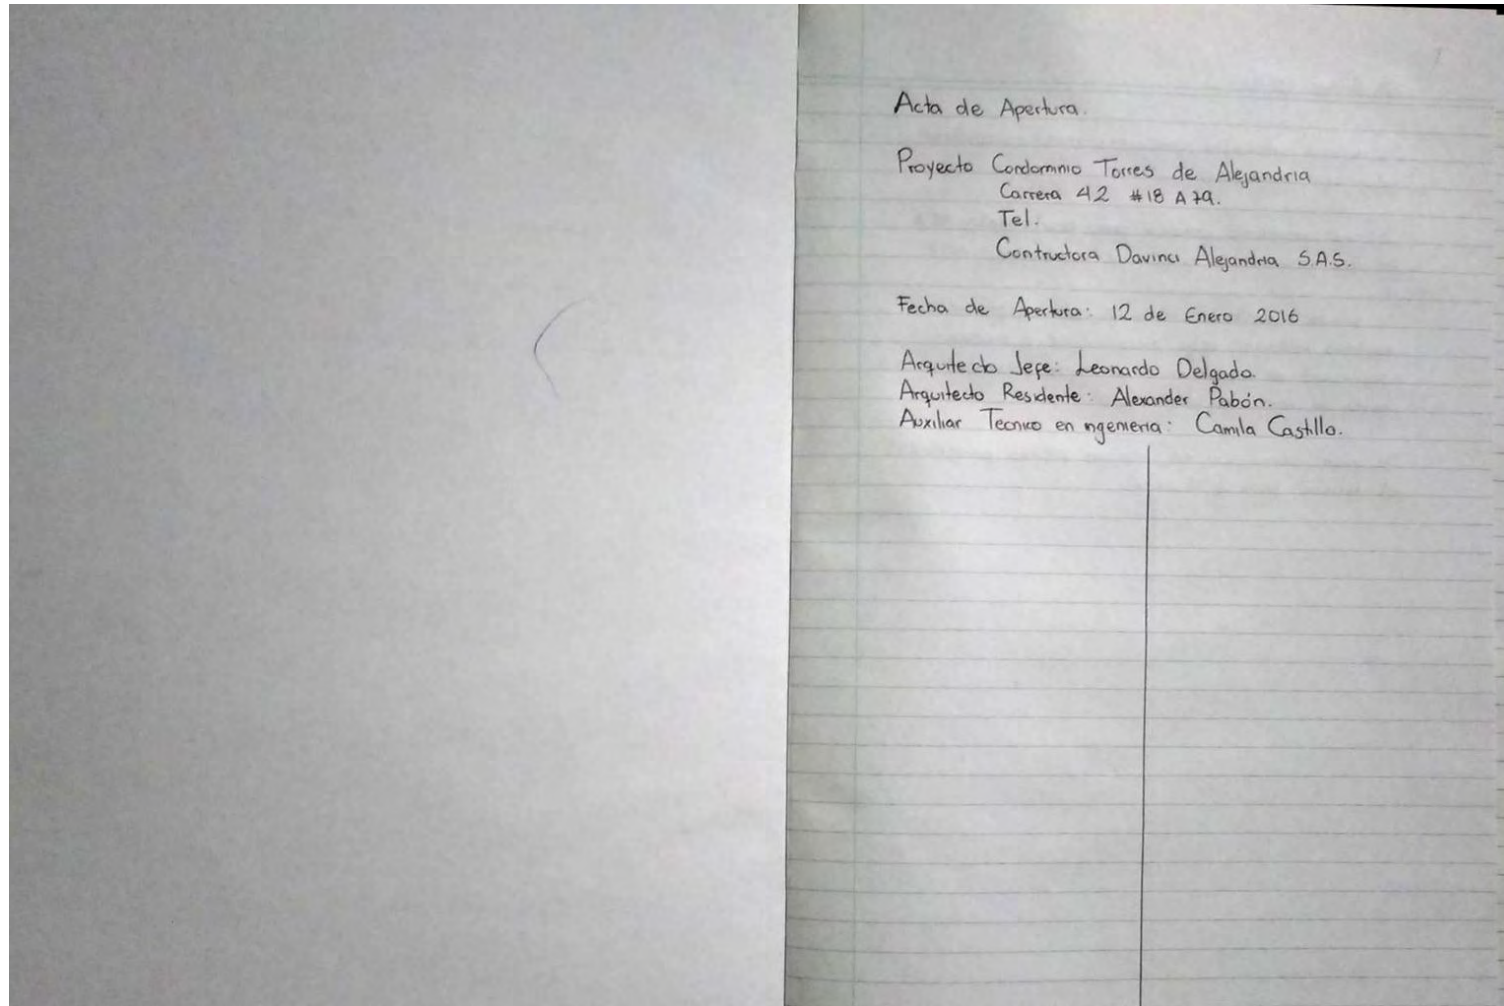 Acta de Apertura.
Proyecto Condominio Torres de Alejandria
Carrera 42 #18 A 79.
Tel.
Contructora Davinci Alejandria S.A.S.
Fecha de Apertura: 12 de Enero 2016
Arquitecto Jefe: Leonardo Delgado.
Arquitecto Residente: Alexander Pabón.
Auxiliar Tecnico en ingenieria: Camila Castillo.